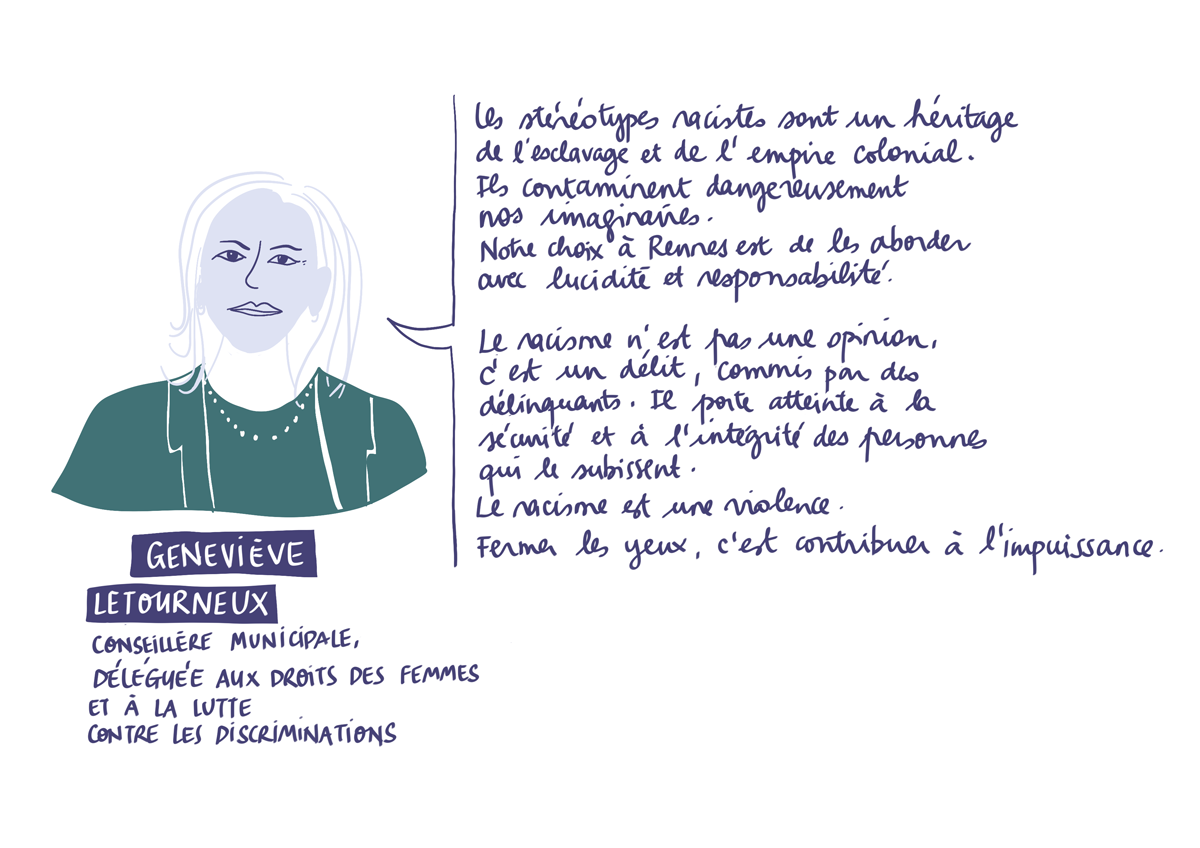 Les stéréotypes racistes sont un héritage
de l'esclavage et de l'empire colonial.
Ils contaminent dangereusement
nos imaginaires.
Notre choix à Rennes est de les aborder
avec lucidité et responsabilité.
Le racisme n'est pas une opinion,
c'est un délit, commis par des
délinquants. Il porte atteinte à la
sécurité et à l'intégrité des personnes
qui le subissent.
Le racisme est une violence.
Fermer les yeux, c'est contribuer à l'impuissance.
GENEVIÈVE
LETOURNEUX
CONSEILLÈRE MUNICIPALE,
DÉLÉGUÉE AUX DROITS DES FEMMES
ET À LA LUTTE
CONTRE LES DISCRIMINATIONS